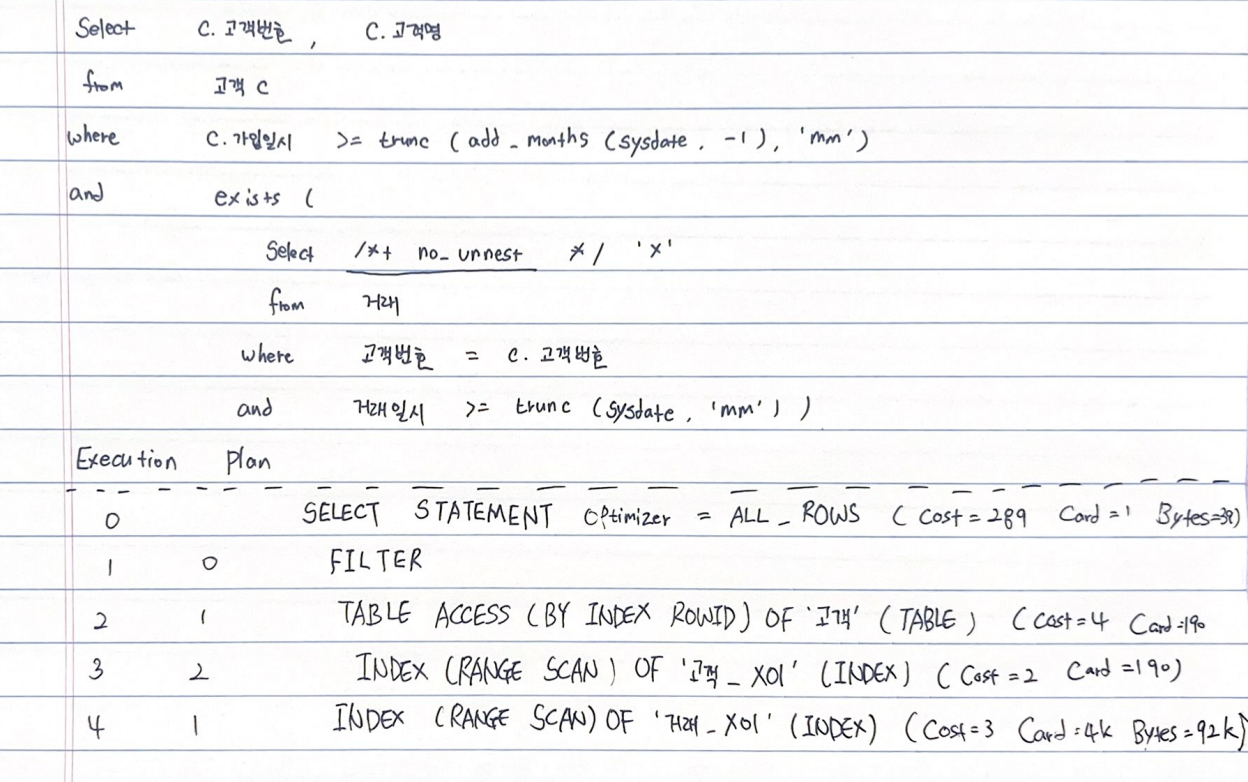 Select C. 고객번호 , C. 고객명
from 고객 C
where C. 가입일시 >= trunc ( add_months (sysdate , -1), 'mm')
and exists (
Select /*+ no_unnest */ 'x'
from 거래
where 고객번호 = C. 고객번호
and 거래일시 >= trunc (sysdate , 'mm') )
Execution Plan
0 SELECT STATEMENT Optimizer = ALL_ROWS (Cost=289 Card=1 Bytes=39)
1 0 FILTER
2 1 TABLE ACCESS (BY INDEX ROWID) OF '고객' (TABLE) (Cost=4 Card=190
3 2 INDEX (RANGE SCAN) OF '고객_X01' (INDEX) (Cost=2 Card=190)
4 1 INDEX (RANGE SCAN) OF '거래_X01' (INDEX) (Cost=3 Card=4k Bytes=92k)